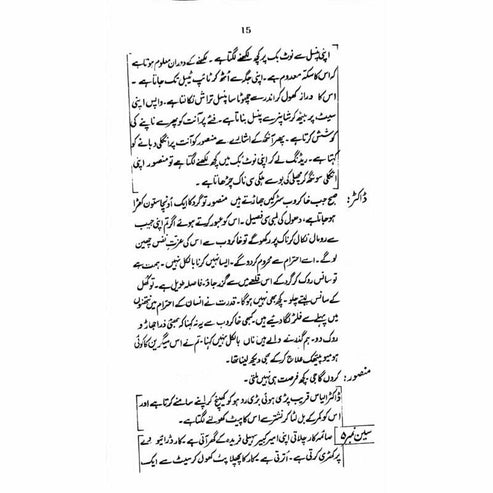 15
اپنی پنسل سے نوٹ بک پر کچھ لکھنے لگتا ہے۔ لکھنے کے دوران معلوم ہوتا ہے
کہ اس کا سکہ معدوم ہے۔ اپنی جگہ سے اُٹھ کر ٹائپ ٹیبل تک جاتا ہے۔
اس کا دراز کھول کر اندر سے چھوٹا سا پنسل تراش نکالتا ہے۔ واپس اپنی
سیٹ پر بیٹھ کر شاپنر سے پنسل بناتا ہے۔ فٹے پر آنت کو پھر سے ناپنے کی
کوشش کرتا ہے۔ پھر آنکھ کے اشارے سے منصور کو آنت پر انگلی دبانے کو
کہتا ہے۔ ریڈنگ لے کر اپنی نوٹ بک میں کچھ لکھنے لگتا ہے تو منصور اپنی
انگلی سونگھ کر مچھلی کی بو سے ہلکی سی ناک چڑھاتا ہے۔
ڈاکٹر: صبح جب خاکروب سڑکیں جھاڑتے ہیں منصور تو گرد کا ایک اُونچا ستون کھڑا
ہو جاتا ہے، دھول کی لمبی سی فصیل۔ اس کو عبور کرتے ہوئے اگر تم اپنی جیب
سے رومال نکال کر ناک پر رکھو گے تو خاکروب سے اس کی عزتِ نفس چھین
لو گے۔ اسے احترام سے محروم کر دو گے۔ ایسا نہیں کرنا بالکل نہیں۔ ہمت ہے
تو سانس روک کر گرد کے اس قلعے میں سے گزر جاؤ، فاصلہ طویل ہے۔ تو کھل
کے سانس لیتے چلو۔ کچھ بھی نہیں ہو گا۔ قدرت نے انسان کے احترام میں نتھنوں
میں پہلے سے فلٹر لگا دیئے ہیں۔ کبھی خاکروب سے یہ نہ کہنا کہ بھئی ذرا جھاڑو
روک دو۔ ہم گذرنے والے ہیں ناں بالکل نہیں کہنا۔ تم نے اس میگرین کا کوئی
ہومیوپیتھک علاج کر کے بھی دیکھ لینا تھا۔
منصور: کروں گا جی کچھ فرصت ہی نہیں ملتی۔
ڈاکٹر الیاس قریب پڑی ہوئی بڑی ردہو کو کھینچ کر اپنے سامنے کرتا ہے اور
اس کو کمر کے بل لٹا کر نشتر سے اس کا پیٹ کھولنے لگتا ہے۔
سین نمبر ۵ صائمہ کار چلاتی اپنی امیر کبیر سہیلی فریدہ کے گھر آتی ہے۔ کار ڈرائیو وے
پر کھڑی کرتی ہے۔ اُترتی ہے۔ کار کا پچھلا پٹ کھول کر سیٹ سے ایک